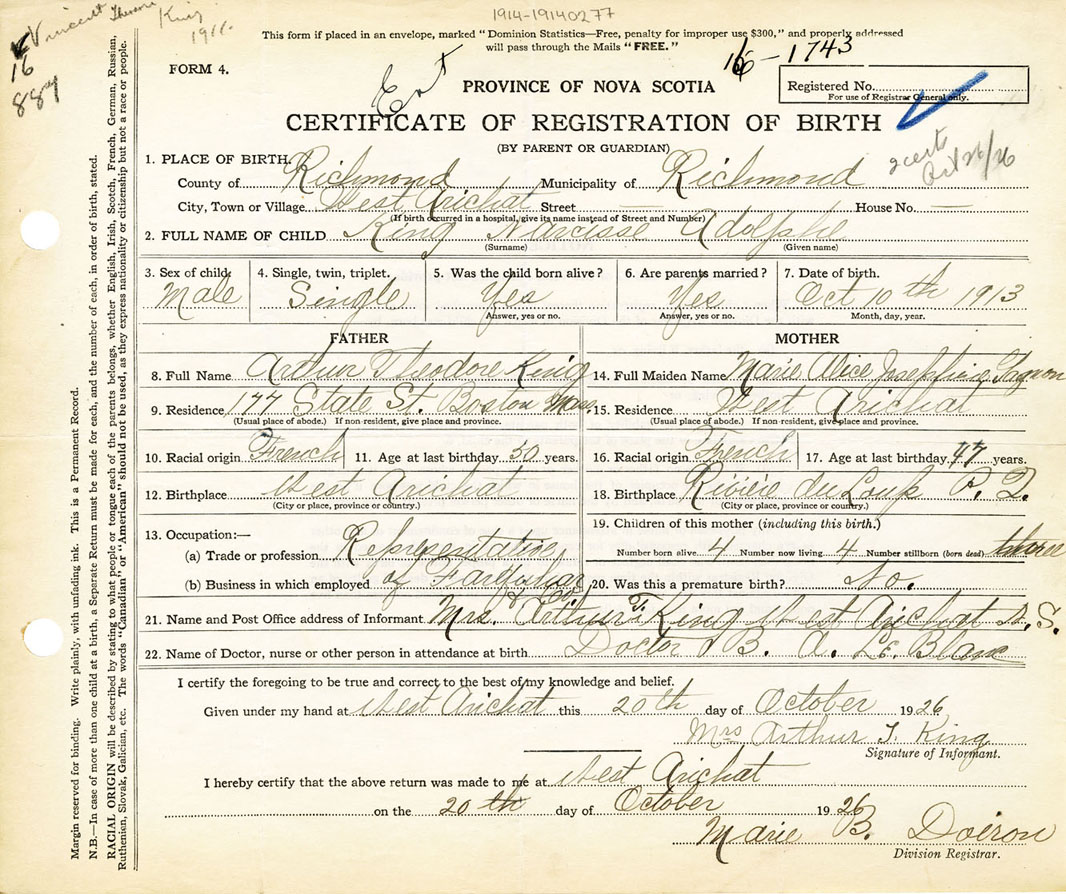 1914-19140277
Vincent Theodore
King
1911.
16
887
This form if placed in an envelope, marked “Dominion Statistics—Free, penalty for improper use $300,” and properly addressed
will pass through the Mails “FREE.”
16-1743
FORM 4.
PROVINCE OF NOVA SCOTIA
Registered No.
For use of Registrar General only.
CERTIFICATE OF REGISTRATION OF BIRTH
(BY PARENT OR GUARDIAN)
Oct 26/26
1. PLACE OF BIRTH.
County of Richmond Municipality of Richmond
City, Town or Village West Arichat Street — House No. —
(If birth occurred in a hospital, give its name instead of Street and Number)
2. FULL NAME OF CHILD King Narcisse Adolphe
(Surname) (Given name)
3. Sex of child 4. Single, twin, triplet. 5. Was the child born alive? 6. Are parents married? 7. Date of birth.
Male Single Yes Yes Oct 10th 1913
Answer, yes or no. Answer, yes or no. Month, day, year.
FATHER MOTHER
8. Full Name Arthur Theodore King 14. Full Maiden Name Marie Alice Josephine Gagnon
9. Residence 177 State St. Boston Mass 15. Residence West Arichat
(Usual place of abode.) If non-resident, give place and province. (Usual place of abode.) If non-resident, give place and province.
10. Racial origin French 11. Age at last birthday 50 years. 16. Racial origin French 17. Age at last birthday 47 years.
12. Birthplace West Arichat 18. Birthplace Rivière du Loup P. Q.
(City or place, province or country.) (City or place, province or country.)
13. Occupation:— 19. Children of this mother (including this birth.)
(a) Trade or profession Representative Number born alive 4 Number now living 4 Number stillborn (born dead)
(b) Business in which employed of Farquhar & Co. 20. Was this a premature birth? No.
21. Name and Post Office address of Informant Mrs. Arthur T. King West Arichat N. S.
22. Name of Doctor, nurse or other person in attendance at birth Doctor B. A. Le Blanc
I certify the foregoing to be true and correct to the best of my knowledge and belief.
Given under my hand at West Arichat this 20th day of October 1926
Mrs Arthur T. King
Signature of Informant.
I hereby certify that the above return was made to me at West Arichat
on the 20th day of October 1926
Marie B. Doiron
Division Registrar.
Margin reserved for binding. Write plainly, with unfading ink. This is a Permanent Record.
N.B.—In case of more than one child at a birth, a Separate Return must be made for each, and the number of each, in order of birth, stated.
RACIAL ORIGIN will be described by stating to what people or tongue each of the parents belongs, whether English, Irish, Scotch, French, German, Russian,
Ruthenian, Slovak, Galician, etc. The words “Canadian” or “American” should not be used, as they express nationality or citizenship but not a race or people.